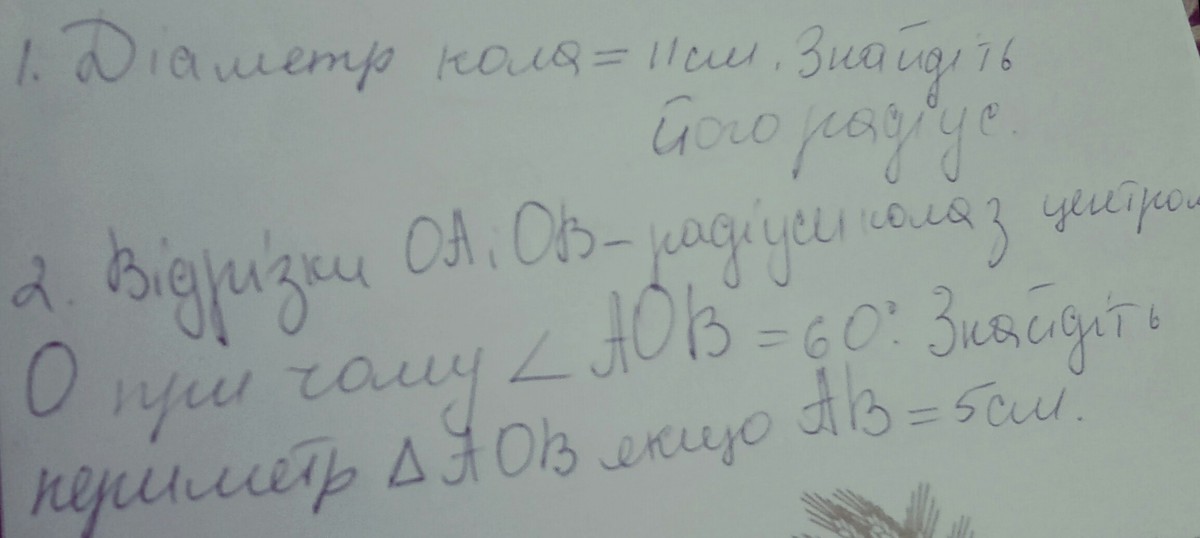 1. Діаметр кола = 11 см. Знайдіть
його радіус.
2. Відрізки OA i OB – радіуси кола з центром
O при чому ∠ AOB = 60°. Знайдіть
периметр Δ AOB якщо AB = 5 см.